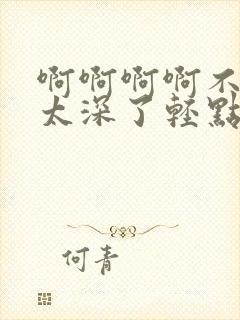 啊啊啊啊不
太深了輕點
何青